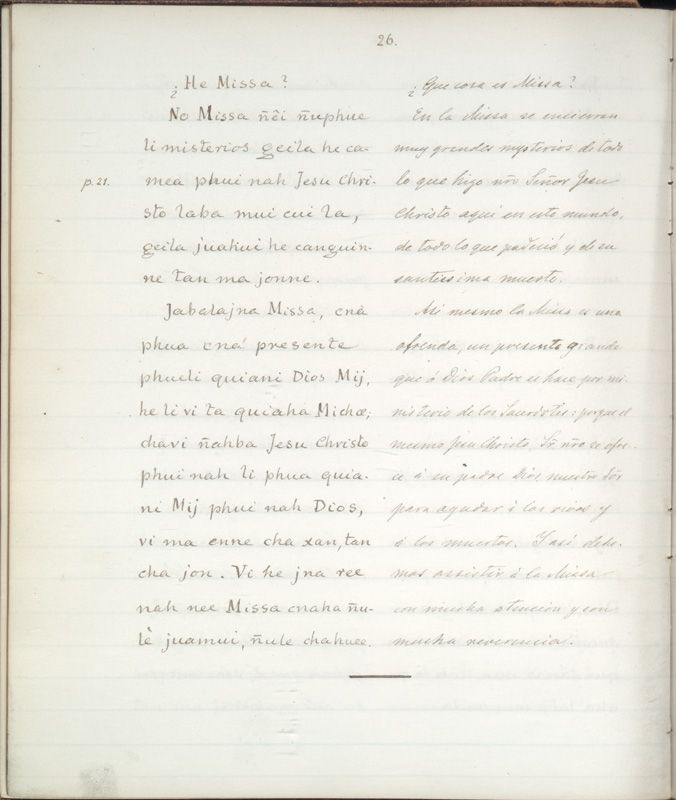 26.
¿He Missa?
No Missa ñêi ñuphue
li misterios geila he ca-
p. 21.
mea phui nah Jesu Chri-
sto laba mui cui la,
geila juahui he canguin-
ne tan ma jonne.
Jabalajna Missa, cnà
phua cná presente
phueli quiani Dios Mij,
he li vi ta quiaha Michæ;
chavi ñahba Jesu Christo
phui nah li phua quia-
ni Mij phui nah Dios,
vi ma enne cha xan, tan
cha jon. Vi he jna ree
nah nee Missa cnaha ñu-
lè juamui, ñule chahuee.
¿Que cosa es Missa?
En la Missa se encierran
muy grandes mysterios de todo
lo que hizo nr̃o Señor Jesu
Christo aqui en este mundo,
de todo lo que padeció y de su
santissima muerte.
Asi mesmo la Missa es una
ofrenda, un presente grande
que á Dios Padre se hace por mi-
nisterio de los Sacerdotes: porque el
mesmo Jesu Christo Sr. nr̃o se ofre-
ce á su padre Dios nuestro Sōr
para ayudar á los vivos y
á los muertos. Y asi debe-
mos assistir á la Missa
con mucha atencion y con
mucha reverencia.